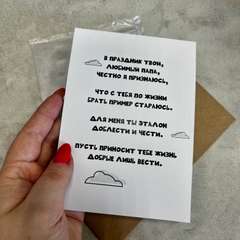 В ПРАЗДНИК ТВОЙ,
ЛЮБИМЫЙ ПАПА,
ЧЕСТНО Я ПРИЗНАЮСЬ,
ЧТО С ТЕБЯ ПО ЖИЗНИ
БРАТЬ ПРИМЕР СТАРАЮСЬ.
ДЛЯ МЕНЯ ТЫ ЭТАЛОН
ДОБЛЕСТИ И ЧЕСТИ.
ПУСТЬ ПРИНОСИТ ТЕБЕ ЖИЗНЬ
ДОБРЫЕ ЛИШЬ ВЕСТИ.